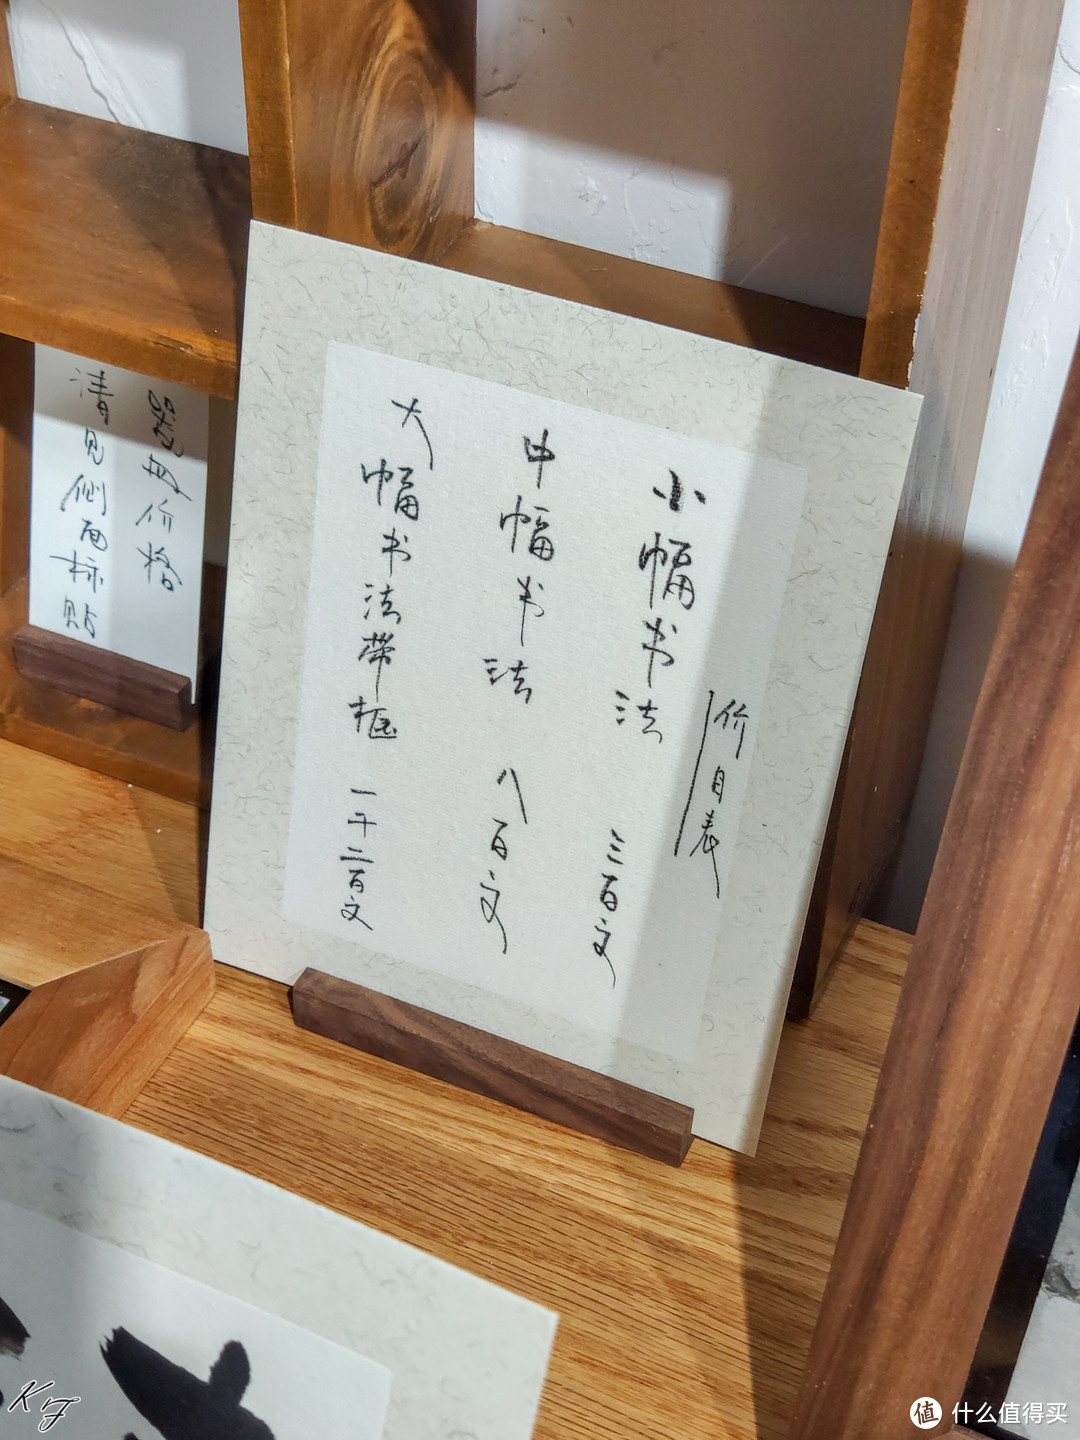 价目表
小幅书法 三百文
中幅书法 八百文
大幅书法带框 一千二百文
器皿价格
请见侧面标贴
KF
值 什么值得买